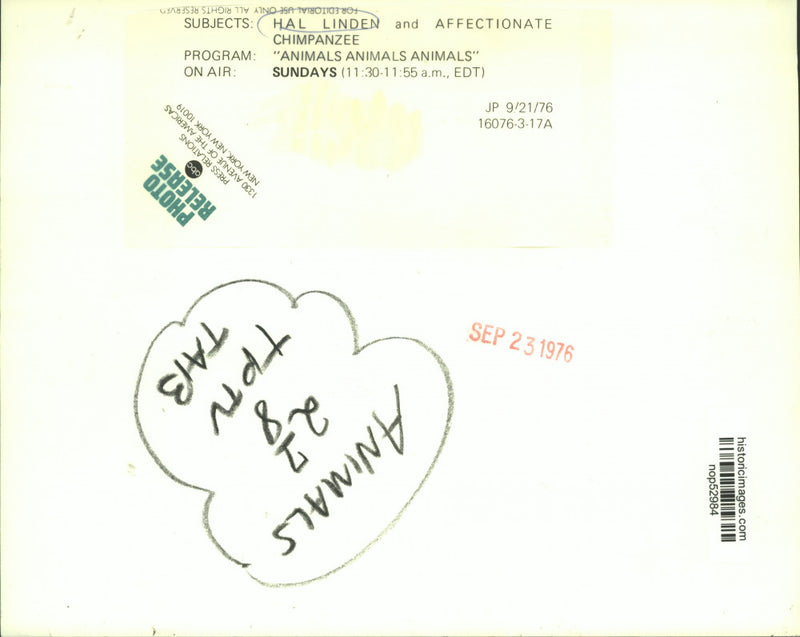 FOR EDITORIAL USE ONLY ALL RIGHTS RESERVED
SUBJECTS: HAL LINDEN and AFFECTIONATE
CHIMPANZEE
PROGRAM: "ANIMALS ANIMALS ANIMALS"
ON AIR: SUNDAYS (11:30-11:55 a.m., EDT)
JP 9/21/76
16076-3-17A
PHOTO
RELEASE
abc
PRESS RELATIONS
1330 AVENUE OF THE AMERICAS
NEW YORK, NEW YORK 10019
SEP 23 1976
TAB
TPTV
ANIMALS
historicimages.com
nop52984